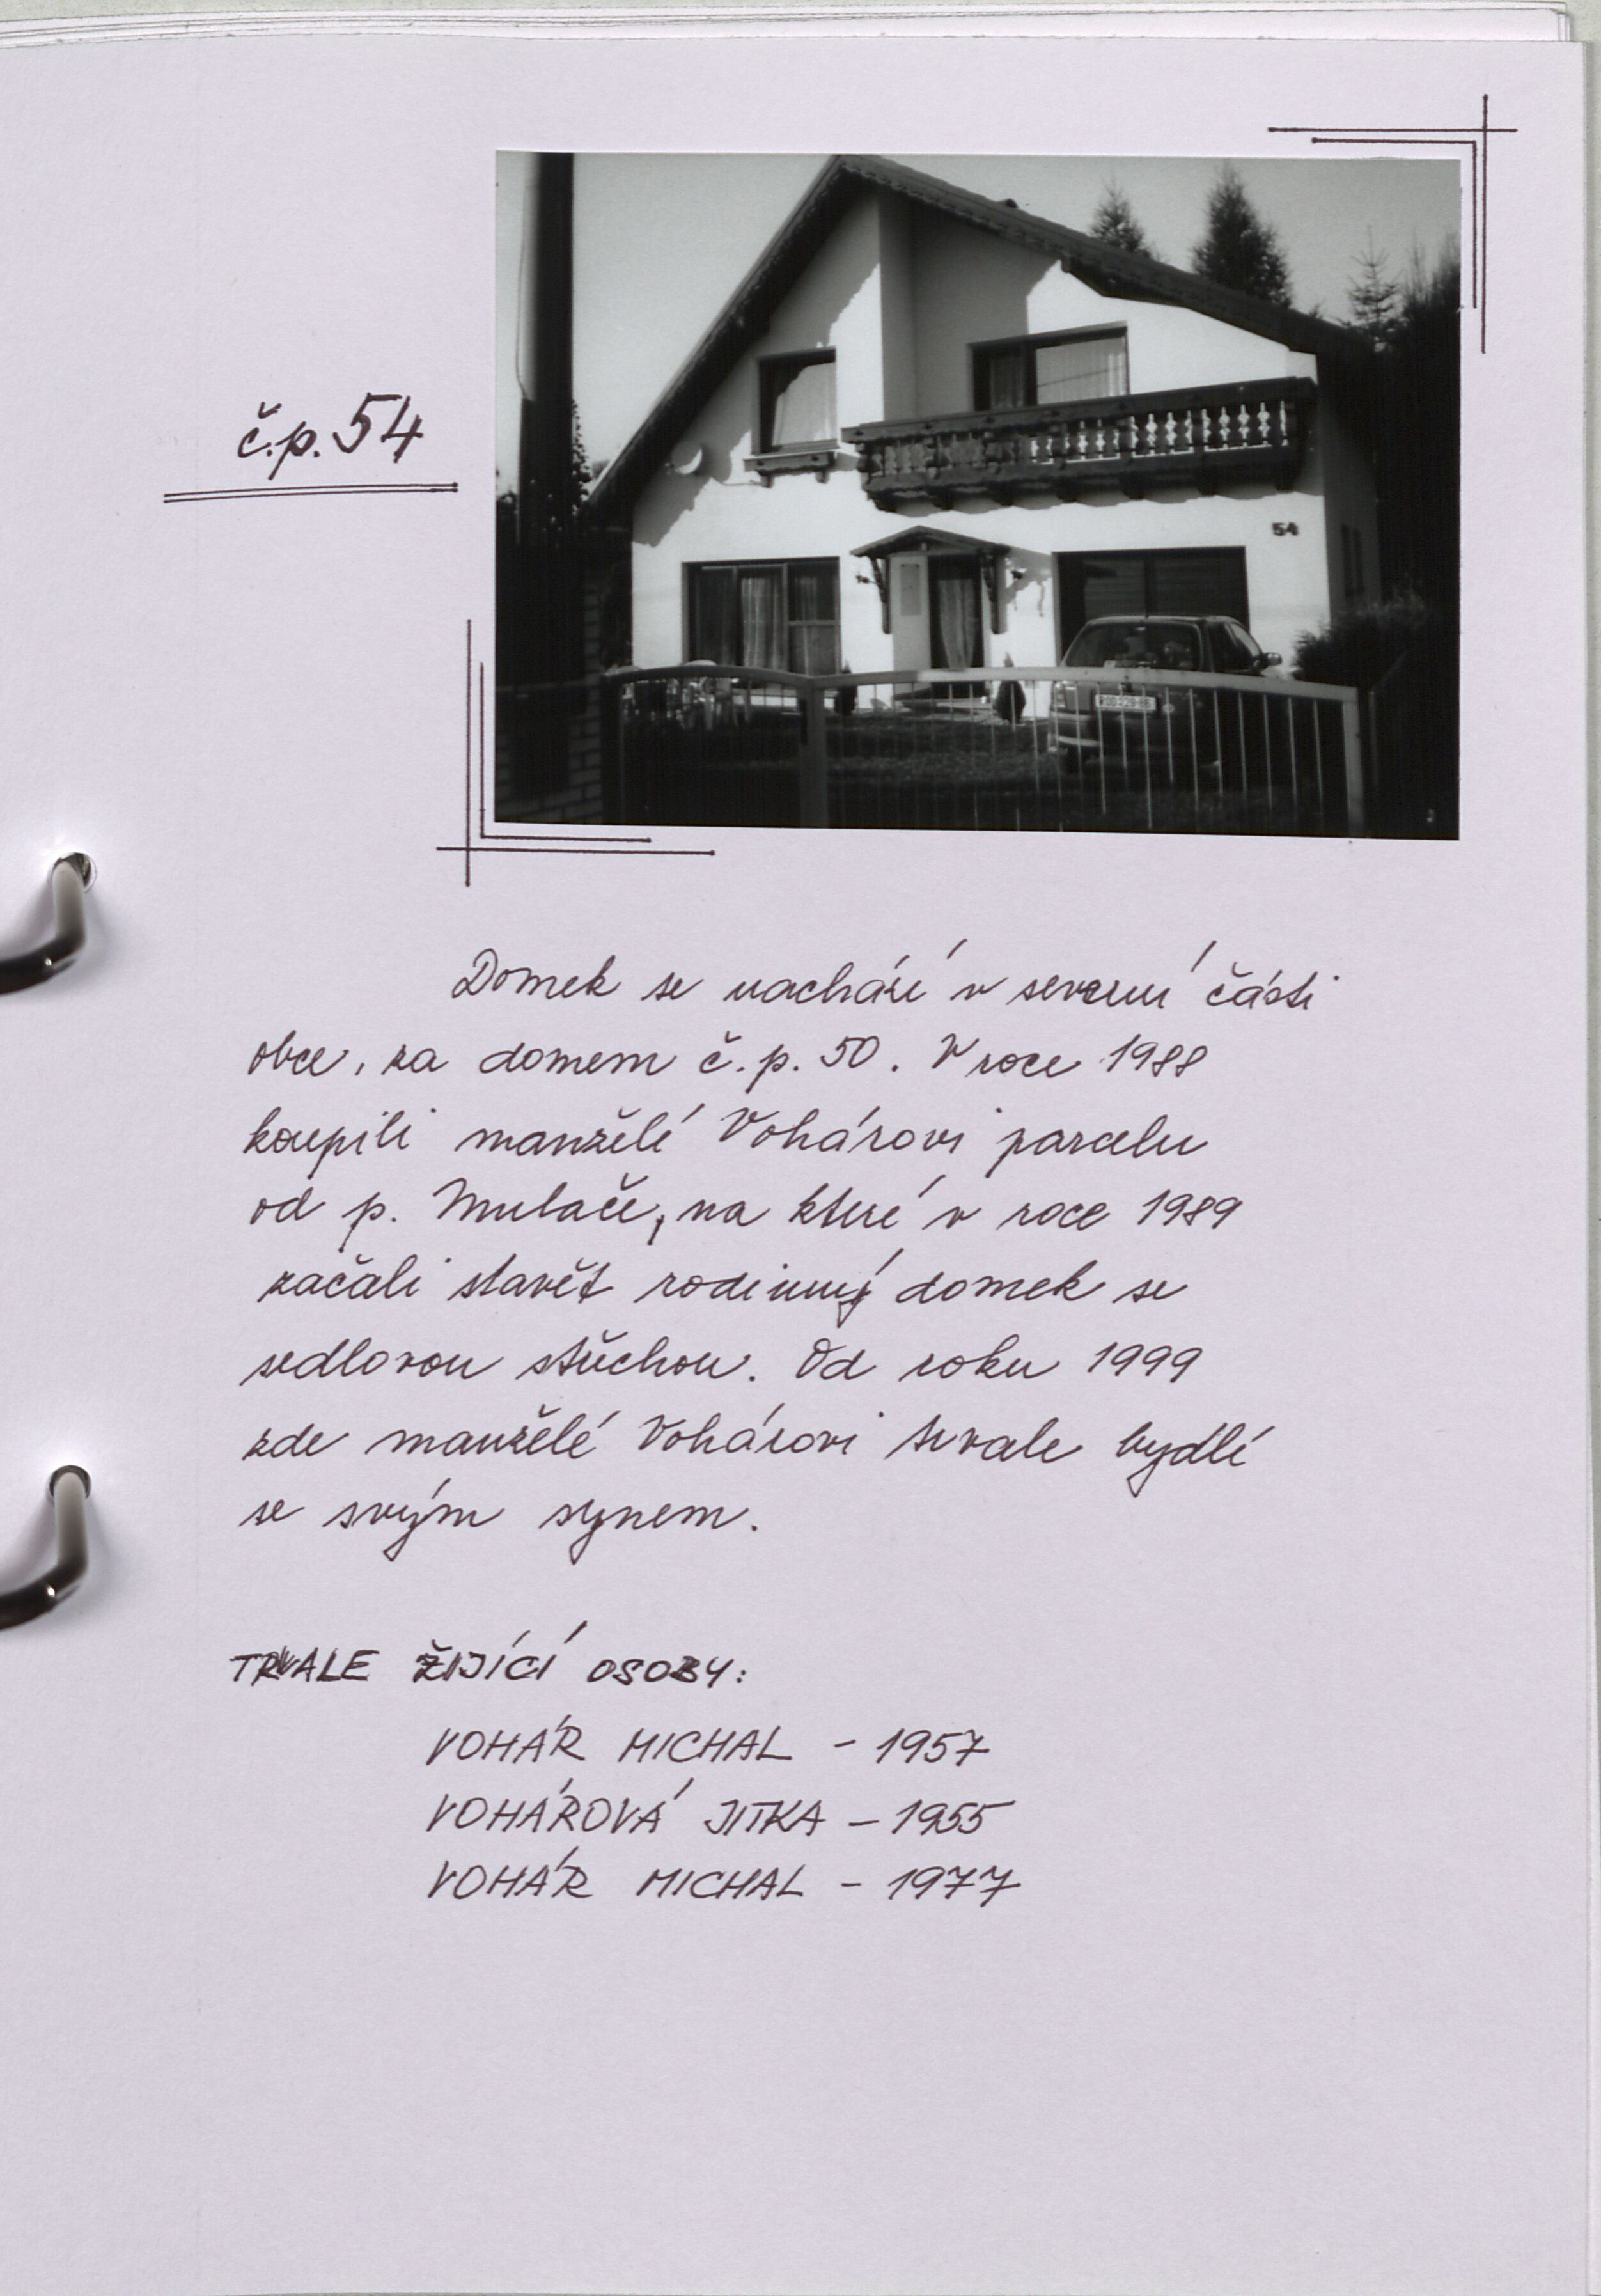 č.p. 54
54
Domek se nachází v severní části
obce, za domem č.p. 50. V roce 1988
koupili manželé Vohárovi parcelu
od p. Mulače, na které v roce 1989
začali stavět rodinný domek se
sedlovou střechou. Od roku 1999
zde manželé Vohárovi trvale bydlí
se svým synem.
TRVALE ŽIJÍCÍ OSOBY:
VOHÁR MICHAL - 1957
VOHÁROVÁ JITKA - 1955
VOHÁR MICHAL - 1977